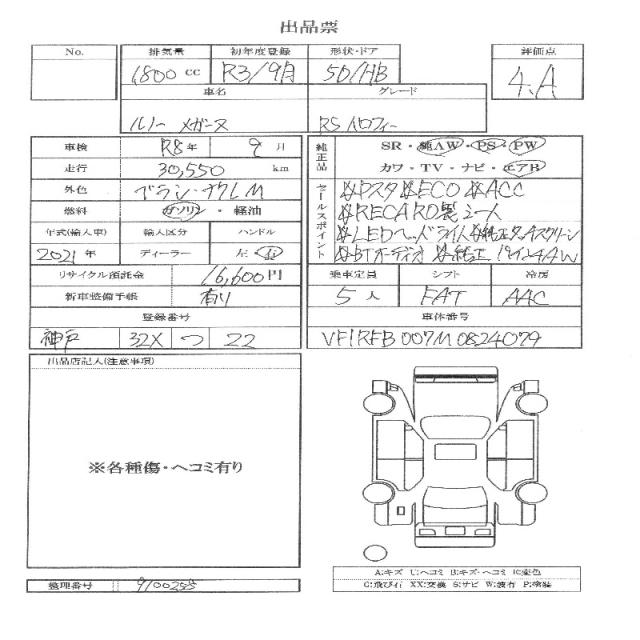 出品票
No. 排気量 初年度登録 形状・ドア 評価点
1,800 cc R3/9月 5D/HB 4.A
車名 グレード
ルノー メガーヌ RSトロフィー
車検 R8年 9月
走行 30,550 km
外色 ブランナクレM
燃料 ガソリン・軽油
年式(輸入車) 輸入区分 ハンドル
2021年 ディーラー 左 右
リサイクル預託金 16,600円
新車整備手帳 有り
登録番号
神戸 32X つ 22
純正品 SR・純AW・PS・PW
カワ・TV・ナビ・エアB
セールスポイント
※Pスタ※ECO※ACC
※RECARO製シート
※BTオーディオ
乗車定員 シフト 冷房
5人 FAT AAC
車体番号
VF1RFB007M0824079
出品店記入(注意事項)
※各種傷・ヘコミ有り
A:キズ U:ヘコミ B:キズ・ヘコミ
G:飛び石 XX:交換 S:サビ W:波有 P:塗装
整理番号 9100255